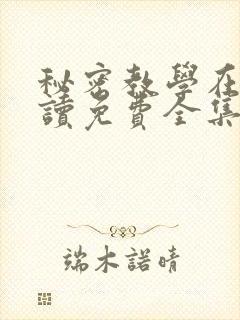 秘密教學在
讀免費全集
端木諾晴